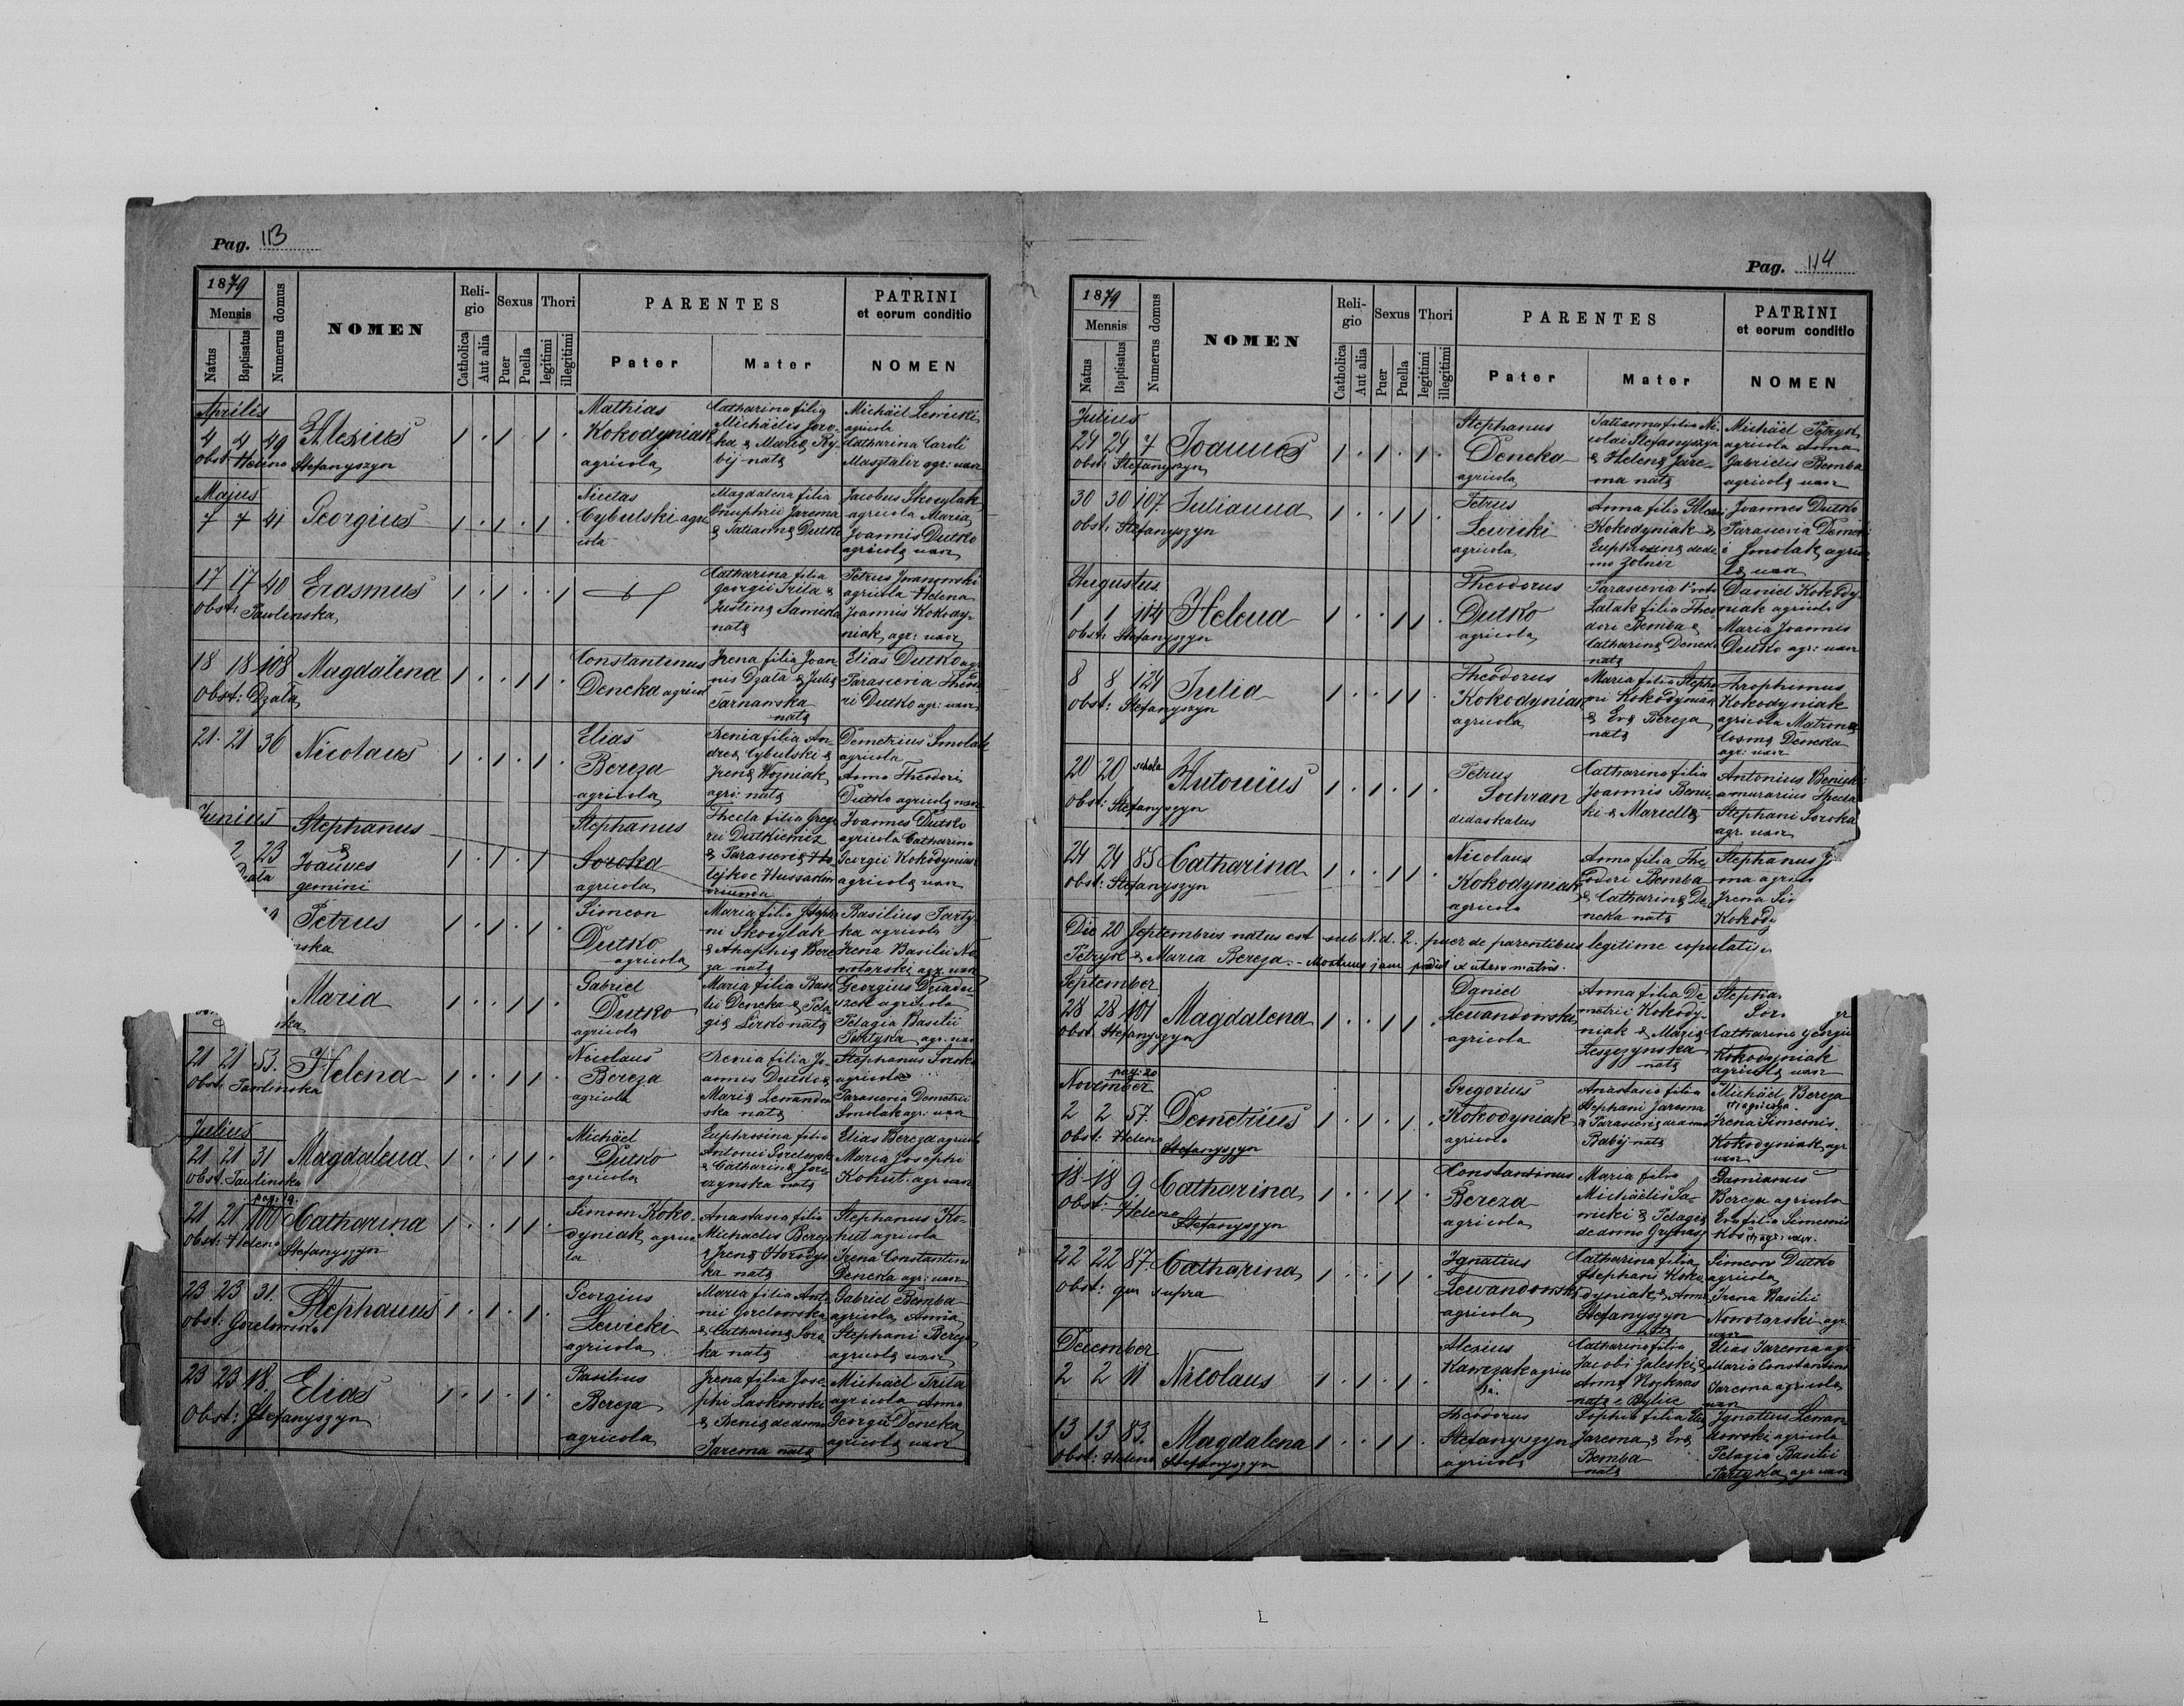 Pag. 113
1879
Mensis
Natus
Baptisatus
Numerus domus
NOMEN
Reli-
gio
Catholica
Aut alia
Sexus
Puer
Puella
Thori
legitimi
illegitimi
PARENTES
Pater
Mater
PATRINI
et eorum conditio
NOMEN
Aprilis
4 4 49 Alexius
obst: Helena Stefanyszyn
Mathias
Kokodyniak
agricola
Catharina filia
Michaëlis Soro-
ka & Maria Ry-
bij nata
Michaël Lewicki
agricola
Catharina Caroli
Masztalir agr: uxor
Majus
7 7 41 Georgius
Nicetas
Cybulski agri
cola
Magdalena filia
Onuphrii Jarema
& Tatianna Dutko
Jacobus Skocylak
agricola Maria
Joannis Dutko
agricola uxor
17 17 40 Erasmus
obst: Pawlinska
Catharina filia
Georgii Trita &
Justina Sawicka
nata
Petrus Iwanowski
agricola Helena
Joannis Kokody-
niak agr: uxor
18 18 108 Magdalena
obst: Dzala
Constantinus
Dencka agricol
Irena filia Joan
nis Dzala & Julia
Tarnawska
nata
Elias Dutko agr
Parascevia Theodo
ri Dutko agr: uxor
21. 21 36 Nicolaus
Elias
Bereza
agricola
Xenia filia An-
drea Cybulski &
Irena Wozniak
agri: nata
Demetrius Smolak
agricola
Anna Theodori
Dutko agricola uxor
Junius
2 23
Stephanus
&
Joannes
gemini
Stephanus
Soroka
agricola
Thecla filia Grego
rii Dutkiewicz
& Parascevia Ho
lejko e Hussakow
oriunda
Joannes Dutko
agricola Catharina
Georgii Kokodyniak
agricola uxor
Petrus
Simeon
Dutko
agricola
Maria filia Stepha
ni Skocylak
& Ahaphia Bere
za nata
Basilius Party-
ka agricola
Xenia Basilii No
wotarski agr. uxor
Maria
Gabriel
Dutko
agricola
Maria filia Basi
lii Dencka & Pela
gia Sirko nata
Georgius Dziadu-
szek agricola
Pelagia Basilii
Partyka agr. uxor
21 21 53. Helena
obst: Pawlinska
Nicolaus
Bereza
agricola
Xenia filia Jo-
annis Dutko &
Maria Lewandow
ska nata
Stephanus Soroka
agricola
Parascevia Demetrii
Smolak agr: uxor
Julius
21 21 31 Magdalena
obst: Pawlinska
Michaël
Dutko
agricola
Euphrosina filia
Antonii Gorelowski
& Catharina Jore
czynska nata
Elias Bereza agricola
Maria Josephi
Kohut agr uxor
pag: 19.
21 21 100 Catharina
obst: Helena Stefanyszyn
Simeon Koko-
dyniak agrico
la
Anastasia filia
Michaelis Bereza
& Irena Horodys
ka nata
Stephanus Ko-
hut agricola
Irena Constantini
Dencka agr: uxor
23 23 31. Stephanus
obst: Gorelowska
Georgius
Lewicki
agricola
Maria filia Anto
nii Gorelowska
& Catharina Soro
ka nata
Gabriel Bemba
agricola Anna
Stephani Bereza
agricola uxor
23 23 18. Elias
obst: Stefanyszyn
Basilius
Bereza
agricola
Irena filia Jose
phi Laskowski
& Xenia de domo
Jarema nata
Michaël Trita
agricola Anna
Georgii Dencka
agricola uxor
Pag. 114
1879
Mensis
Natus
Baptisatus
Numerus domus
NOMEN
Reli-
gio
Catholica
Aut alia
Sexus
Puer
Puella
Thori
legitimi
illegitimi
PARENTES
Pater
Mater
PATRINI
et eorum conditio
NOMEN
Julius
24 24 7 Joannes
obst: Stefanyszyn
Stephanus
Dencka
agricola
Tatianna filia Ni-
colai Stefanyszyn
& Helena Jare-
ma nata
Michaël Petryk
agricola Anna
Gabrielis Bemba
agricola uxor
30 30 107. Julianna
obst: Stefanyszyn
Petrus
Lewicki
agricola
Anna filia Alexii
Kokodyniak &
Euphrosina de do
mo Zolner
Joannes Dutko
Parascevia Demetri
i Smolak agrico
la uxor
Augustus
1 1 114 Helena
obst: Stefanyszyn
Theodorus
Dutko
agricola
Parascevia
Latak filia Theo
dori Bemba &
Catharina Dencka
nata
Daniel Kokody
niak agricola
Maria Joannis
Dutko agr: uxor
8 8 124 Julia
obst: Stefanyszyn
Theodorus
Kokodyniak
agricola
Maria filia Stepha
ni Kokodyniak
& Eva Bereza
nata
Throphimus
Kokodyniak
agricola Matrona
Cosma Dencka
agr: uxor
20 20 schola Antonius
obst: Stefanyszyn
Petrus
Sochran
didaskalus
Catharina filia
Joannis Benic-
ki & Mariella
Antonius Benicki
murarius Thecla
Stephani Soroka
agr. uxor
24 24 85 Catharina
obst: Stefanyszyn
Nicolaus
Kokodyniak
agricola
Anna filia The
odori Bemba
& Catharina De
ncka nata
Stephanus
ma agri
Irena Si
Kokody
Die 20 Septembris natus est sub N. d. 2. puer de parentibus legitime copulatis
Petryk & Maria Bereza. – Mortuus jam prodiit ex utero matris.
September
28 28 101 Magdalena
obst: Stefanyszyn
Daniel
Lewandowski
agricola
Anna filia De
metrii Kokody-
niak & Maria
Leszczynska
nata
Stepha
Catharina Georgii
Kokodyniak
agricola uxor
pag: 20
November
2 2 57. Demetrius
obst: Helena
Stefanyszyn
Gregorius
Kokodyniak
agricola
Anastasia filia
Stephani Jarema
& Parascevia de domo
Babij nata
Michaël Bereza
agricola.
Irena Simeonis.
Kokodyniak agr
uxor
18 18 9 Catharina
obst: Helena
Stefanyszyn
Constantinus
Bereza
agricola
Maria filia
Michaëlis Sa-
wicki & Pelagia
de domo Grynasz
Damianus
Bereza agricola
Eva filia Simeonis
agr: uxor.
22 22 87. Catharina
obst: que supra
Ignatius
Lewandowski
agricola
Catharina filia
Stephani Koko
dyniak & Anna
Stefanyszyn
nata
Simeon Dutko
agricola
Irena Basilii
Nowotarski agr
uxor
December
2 2 11 Nicolaus
Alexius
Kawczak agrico
la.
Catharina filia
Jacobi Zaleski &
Anna
nata e Bylice
Elias Jarema agr
Maria Constantini
Jarema agricola
uxor
13 13 83. Magdalena
obst: Helena
Stefanyszyn
Theodorus
Stefanyszyn
agricola
Sophia filia Elia
Jarema & Eva
Bemba
nata
Ignatius Lewan
dowski agricola
Pelagia Basilii
Partyka agr uxor